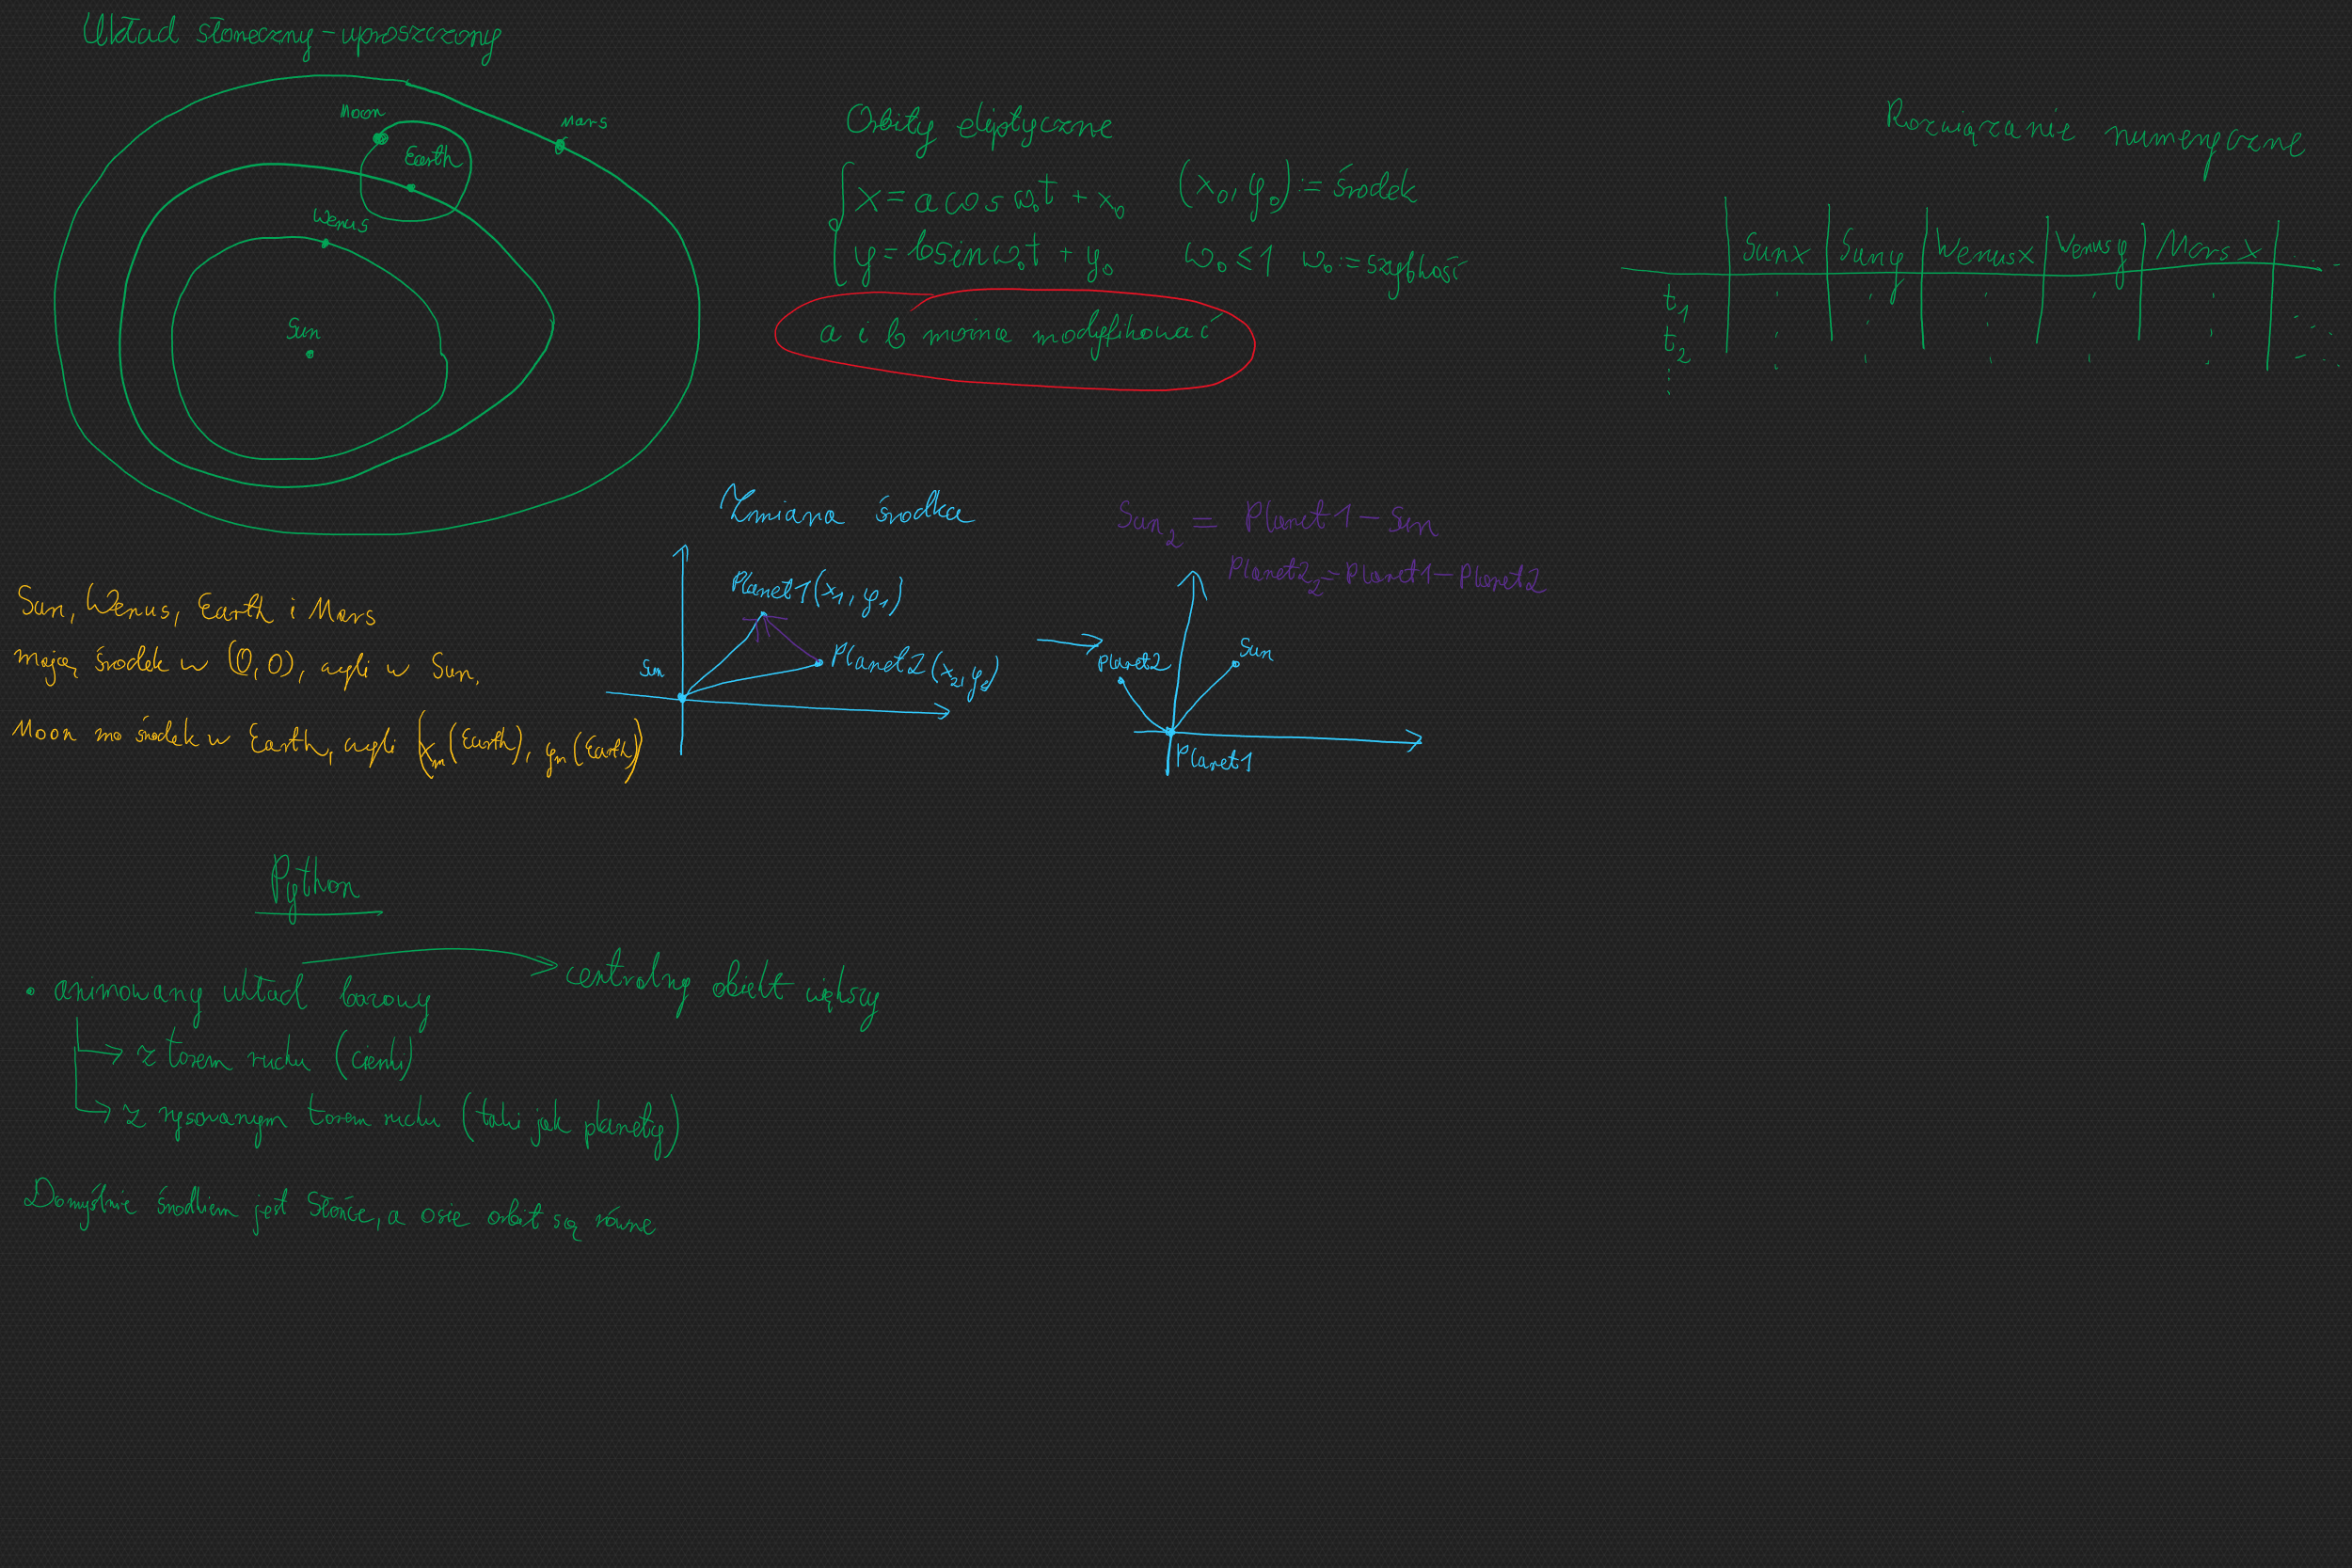 Układ słoneczny - uproszczony
Moon
Mars
Earth
Wenus
Sun
Orbity eliptyczne
x = a cos ω₀t + x₀ (x₀, y₀) := środek
y = b sin ω₀t + y₀ ω₀ ≤ 1 ω₀ := szybkość
a i b można modyfikować
Rozwiązanie numeryczne
Sun x Sun y Wenus x Wenus y Mars x
t₁
t₂
Sun, Wenus, Earth i Mars
mają środek w (0,0), czyli w Sun.
Moon ma środek w Earth, czyli (xₘ(Earth), yₘ(Earth))
Zmiana środka
Planet1 (x₁, y₁)
Sun
Planet2 (x₂, y₂)
Sun₂ = Planet1 - Sun
Planet2₂ = Planet1 - Planet2
Planet2
Sun
Planet1
Python
• animowany układ bazowy
centralny obiekt większy
z torem ruchu (cienki)
z rysowanym torem ruchu (taki jak planety)
Domyślnie środkiem jest Słońce, a osie orbit są równe